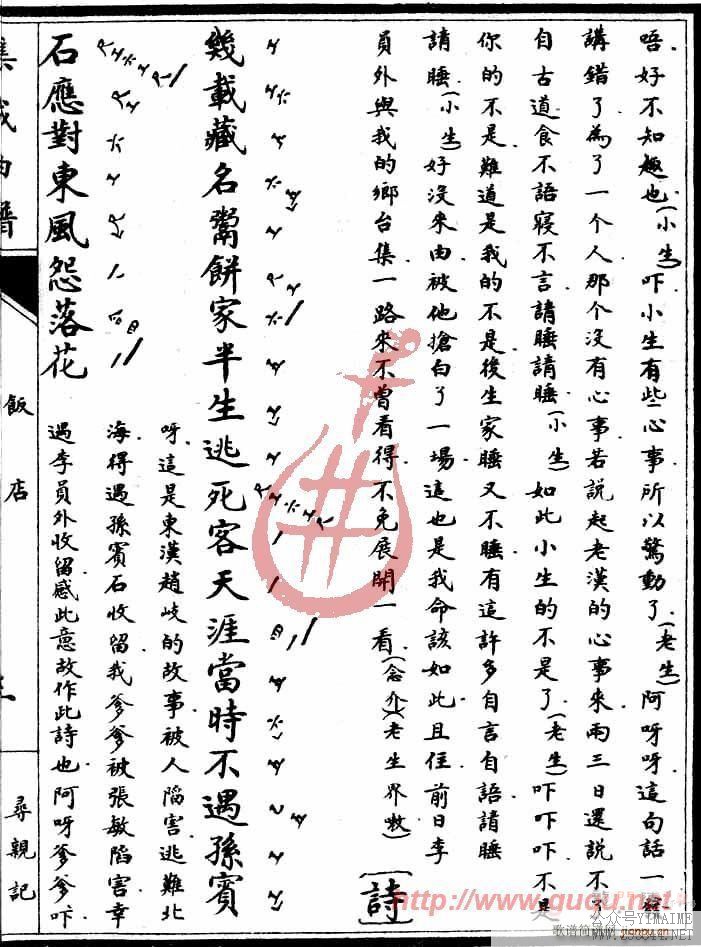 唔好不知趣也(小生)吓小生有些心事所以驚動了(老生)阿呀呀這句話一發
講錯了為了一个人那个沒有心事若說起老漢的心事來兩三日還說不了
自古道食不語寢不言請睡請睡(小生)如此小生的不是了(老生)吓吓吓不是
你的不是難道是我的不是後生家睡又不睡有這許多自言自語請睡
請睡(小生)好沒來由被他搶白了一場這也是我命該如此且住前日李
員外與我的鄉台集一路來不曾看得不免展開一看(念介)(老生界嗽)[詩]
幾載藏名鬻餅家半生逃死客天涯當時不遇孫賓
石應對東風怨落花
呀這是東漢趙岐的故事被人陷害逃難北
海得遇孫賓石收留我爹爹被張敏陷害幸
遇李員外收留感此意故作此詩也阿呀爹爹吓
集成曲譜
飯店
尋親記
http://www.guqu.net
歌谱简谱网 jianpu.cn
公众号YIMAIME